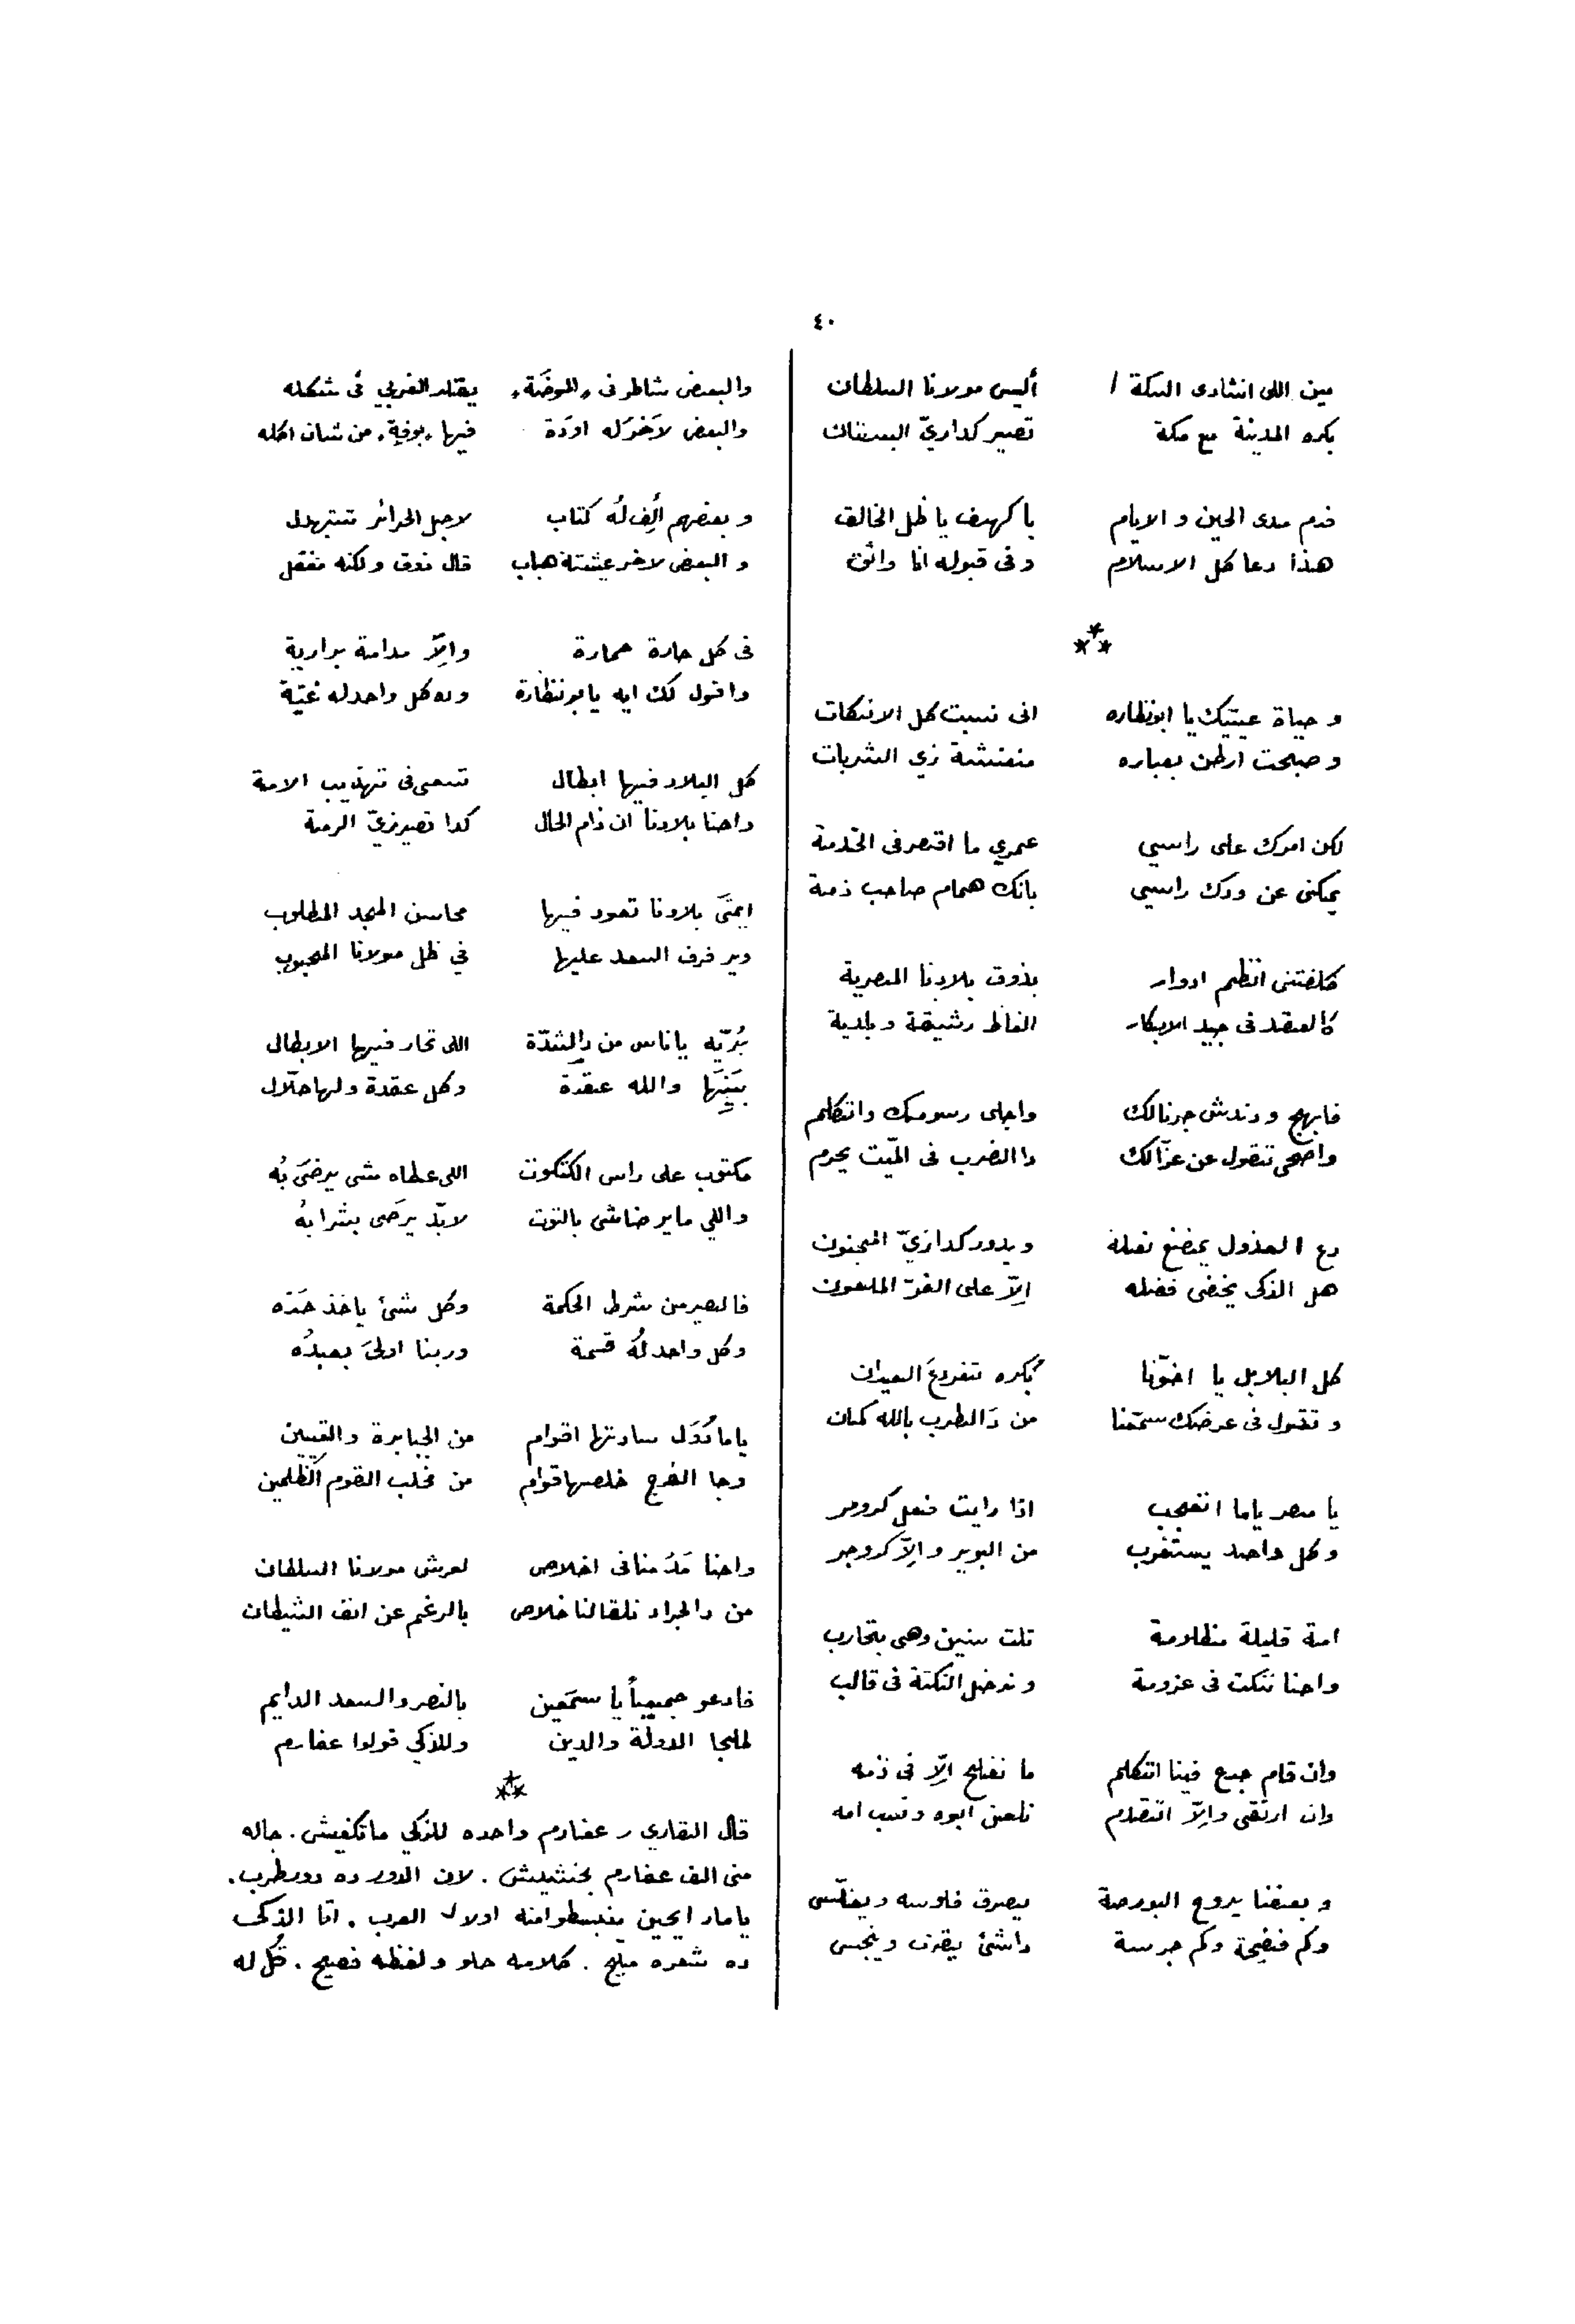 ٤٠
مين اللى انشا دى السكة / أليس مولانا السلطان
بكره المدينة مع مكة تصير كداريّ البستان
فدم مدى الحين و الايام يا كهف يا ظل الخالق
هذا دعا كل الاسلام وفى قبوله انا واثق
و حياة عينيك يا ابونظاره انى نسيت كل الانتكات
و صبحت ارطن بعباره منعنشة زي الشربات
لكن امرك على راسي عمري ما اقتصر فى الخدمة
يمكنى عن ودك راسي بانك همام صاحب ذمة
كلفتنى انظم ادوار بذوق بلادنا المصرية
كالعقد فى جيد الابكار الفاظ رشيقة و بلدية
فابهج ودندش جرنالك واجلى رسومك واتكلم
واصحى تقول عن عزّالك دا الضرب فى الميّت يحرم
دع العذول يمضغ نعله ويدور كدا زيّ المجنون
هل الذكى يخفى فضله الاّ على الغرّ الملعون
كل البلابل يا اخوّنا بُكره تفردعَ العيدان
و تقول فى عرضك سمّعنا من دَالطرب بالله كمان
يا مصر ياما اتعجب اذا رايت فعل كرومر
و كل واحد يستغرب من البوير والاّ كروجر
امة قليلة مظلامة تلت سنين وهى بتحارب
واحنا ننكت فى عزومة وندخل النكتة فى قالب
وان قام جدع فينا اتكلم ما نفلح الاّ فى ذمه
وان ارتقى والاّ اتقدم نلعن ابوه ونسب امه
و بعضنا يروح البورصة يصرف فلوسه ويفلّس
وكم فضيحة وكم جرسة داشئ يقرف وينجس
والبعض شاطر فى «الموضَة» يقلد الغربي فى شكله
والبعض لاخرَله اودَة فيها «بوفيه» من شان اكله
و بعضهم ألِف لُه كتاب لاجل الحرائر تتبهدل
و البعض لاخر عيشتة هباب قال ذوق ولكنه مغفل
فى كل حارة خمارة والاّ مدامة برارية
واقول لك ايه يابونظارة وده كل واحد له غيّة
كل البلاد فيها ابطال تسعى فى تهذيب الامة
واحنا بلادنا ان دام الحال كدا تصير زيّ الرمة
ايمتَى بلادنا تعود فيها محاسن المجد المطلوب
ويرفرف السعد عليها في ظل مولانا المحبوب
بُريّه ياناس من دالشدّة اللى تحار فيها الابطال
بَيّنِهَا والله عقدة وكل عقدة ولها حلّال
مكتوب على راس الكتكوت اللى عطاه مشى يرضىَ بُه
واللي مايرضاشى بالتوت لابدّ يرضَى بشرابهُ
فالصبر من شرط الحكمة وكل شئ ياخذ حَدّه
وكل واحد لُه قسمة وربنا اولىَ بعبدُه
ياما دُوَل سادتها اقوام من الجبابرة والقيين
وجا الفرج خلصها قوام من مخلب القوم الظلمين
واحنا مَدُمنا فى اخلاص لعرش مولانا السلطان
من دالجراد نلقا لنا خلاص بالرغم عن انف الشيطان
فادعو جميعاً يا سمّعين بالنصر والسعد الدايم
لملجا الدولة والدين وللذكي قولوا عفارم
قال القاري ر عفارم واحده للذكي ماتكفيش . جاله
منى الف عفارم بخشيش . لان الدور ده دورطرب .
ياما رايحين ينبسطوا منه اولاد العرب . امّا الذكى
ده شعره مليح . كلامه حلو ولفظه فصيح . قُل له